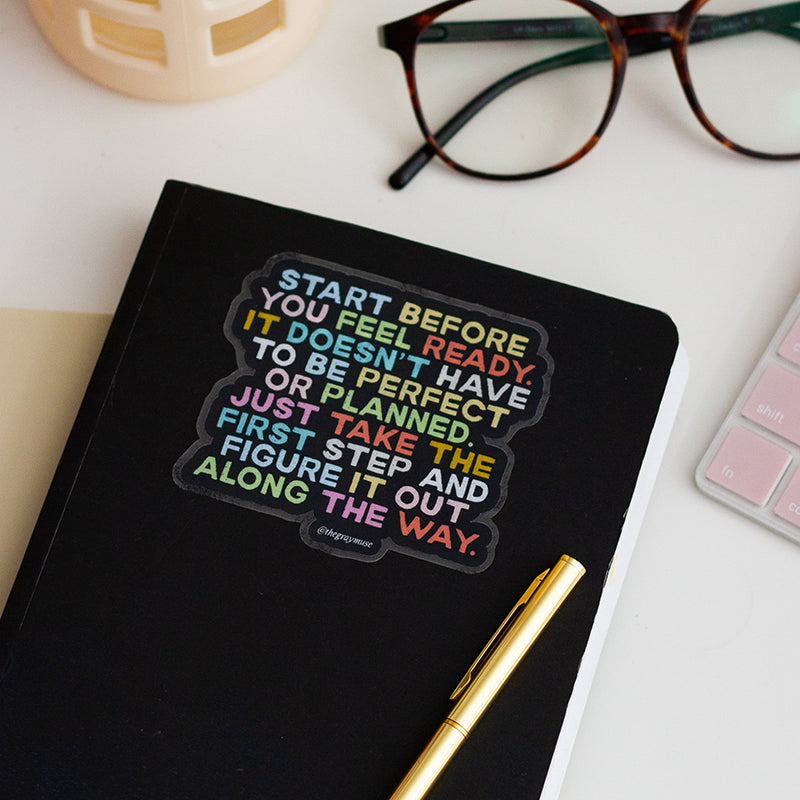 START BEFORE
YOU FEEL READY.
IT DOESN'T HAVE
TO BE PERFECT
OR PLANNED.
JUST TAKE THE
FIRST STEP AND
FIGURE IT OUT
ALONG THE WAY.
@thegraymuse
shift
fn